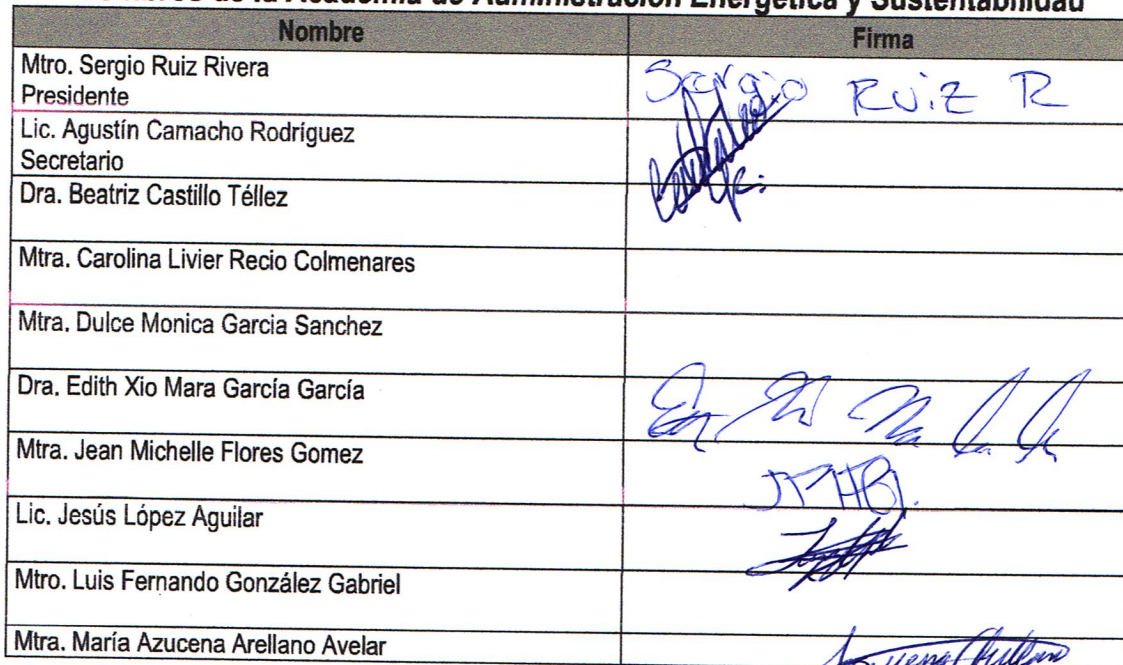 de la Academia de Administración Energética y Sustentabilidad
Nombre Firma
Mtro. Sergio Ruiz Rivera
Presidente
Sergio Ruiz R
Lic. Agustín Camacho Rodríguez
Secretario
Dra. Beatriz Castillo Téllez
Mtra. Carolina Livier Recio Colmenares
Mtra. Dulce Monica Garcia Sanchez
Dra. Edith Xio Mara García García
Mtra. Jean Michelle Flores Gomez
Lic. Jesús López Aguilar
Mtro. Luis Fernando González Gabriel
Mtra. María Azucena Arellano Avelar